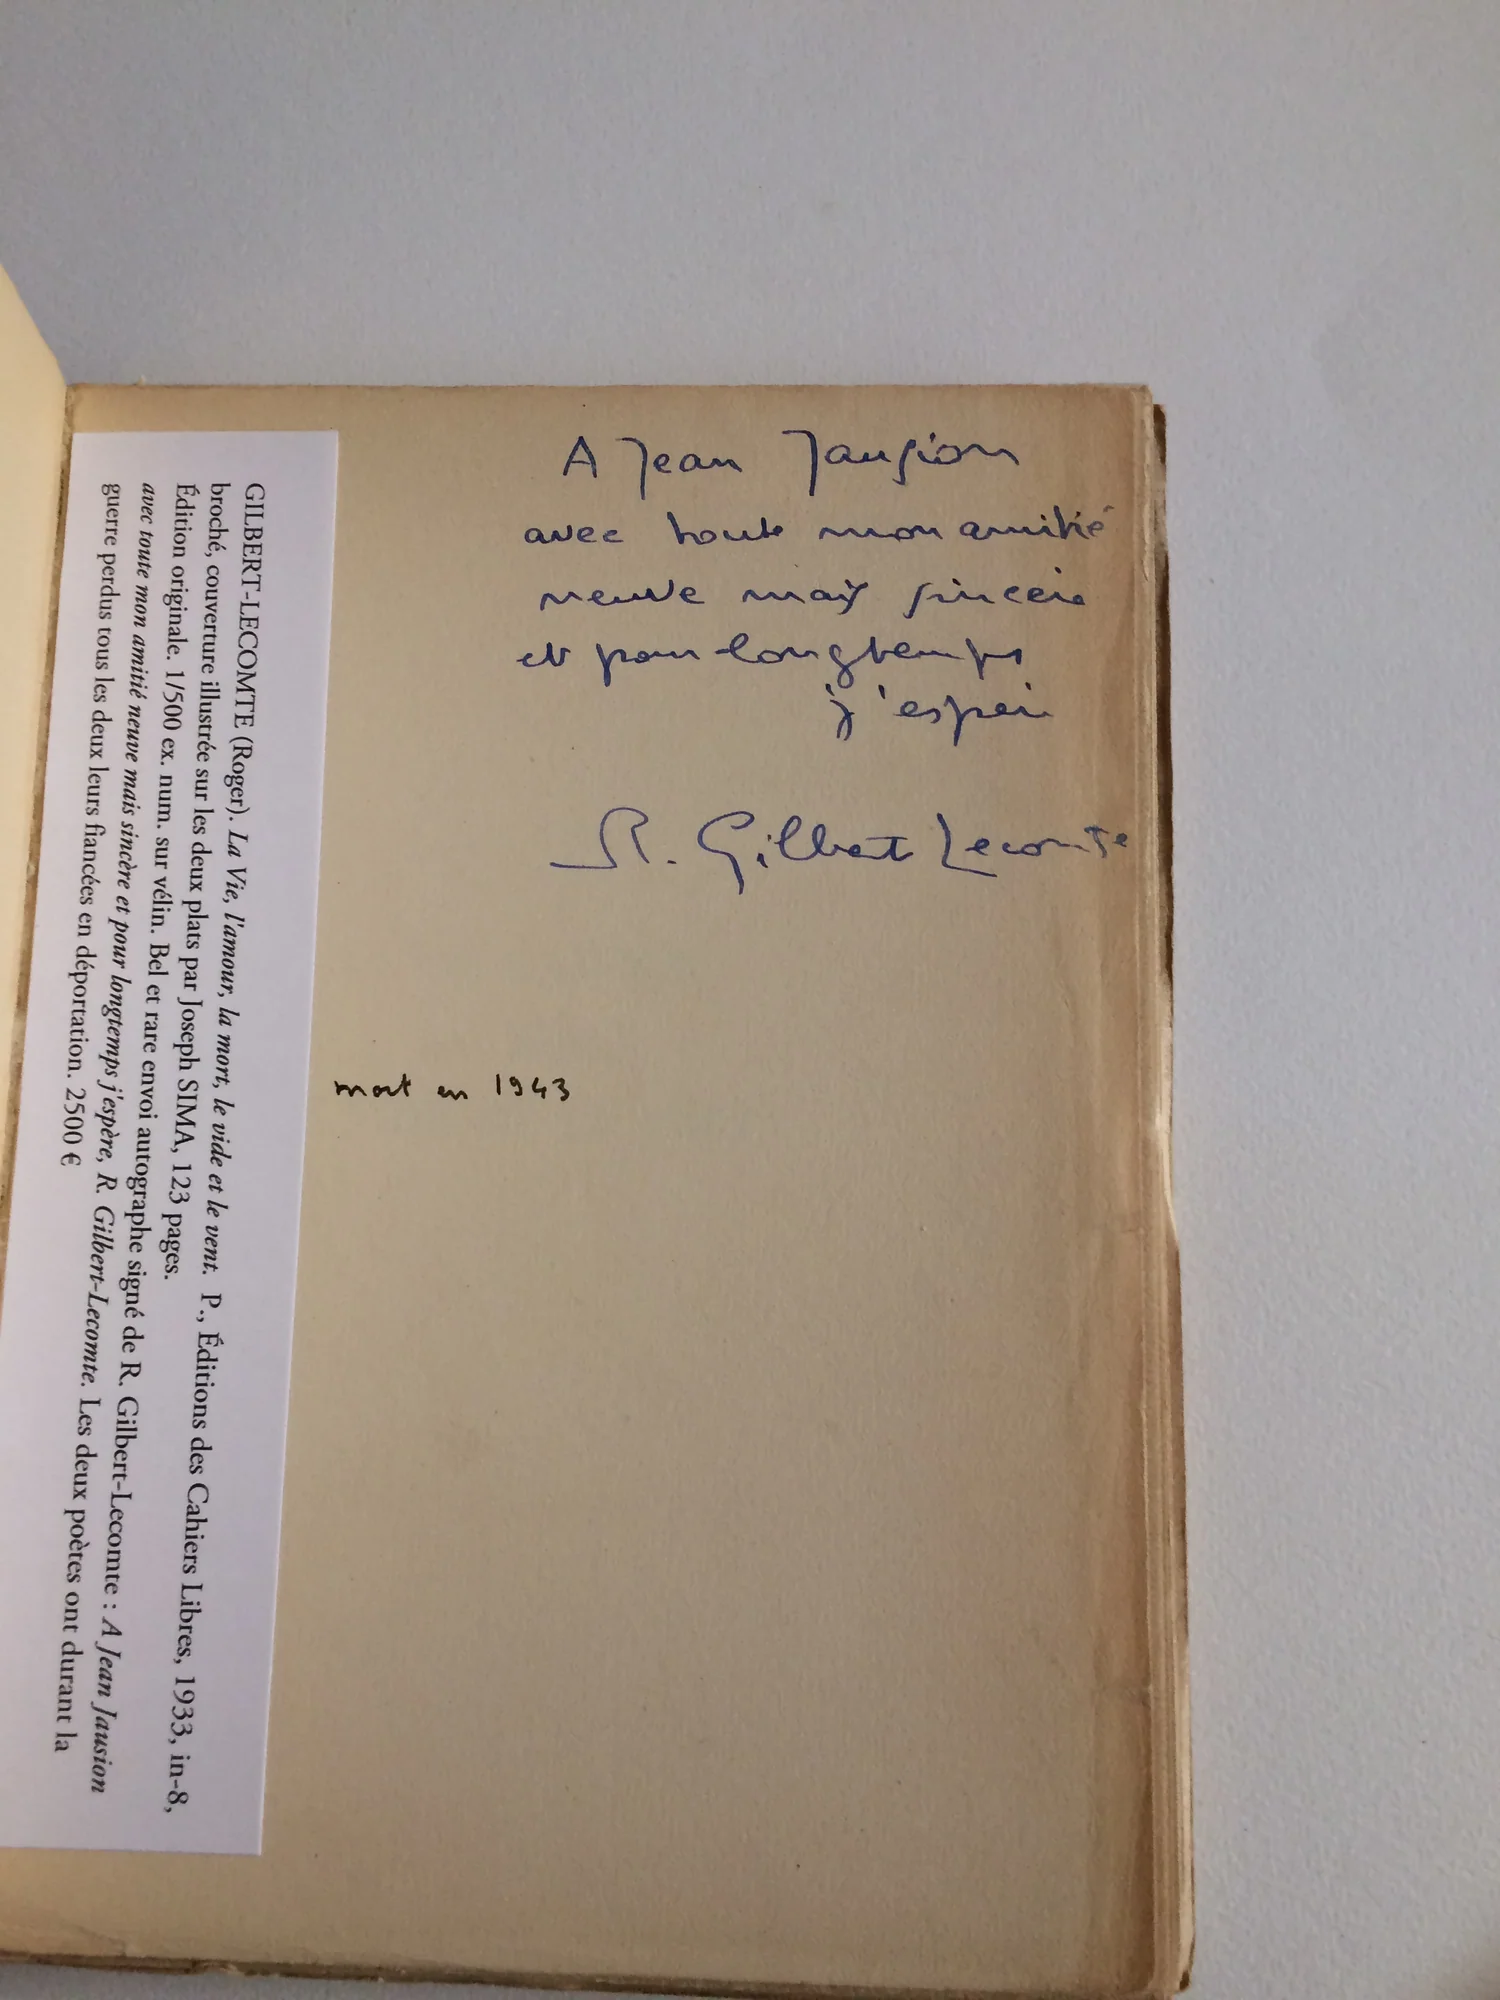 A Jean Jausion
avec toute mon amitié
neuve mais sincère
et pour longtemps
j'espère
R. Gilbert Lecomte
mort en 1943
GILBERT-LECOMTE (Roger). La Vie, l'amour, la mort, le vide et le vent. P., Éditions des Cahiers Libres, 1933, in-8,
broché, couverture illustrée sur les deux plats par Joseph SIMA, 123 pages.
Édition originale. 1/500 ex. num. sur vélin. Bel et rare envoi autographe signé de R. Gilbert-Lecomte : A Jean Jausion
avec toute mon amitié neuve mais sincère et pour longtemps j'espère, R. Gilbert-Lecomte. Les deux poètes ont durant la
guerre perdus tous les deux leurs fiancées en déportation. 2500 €